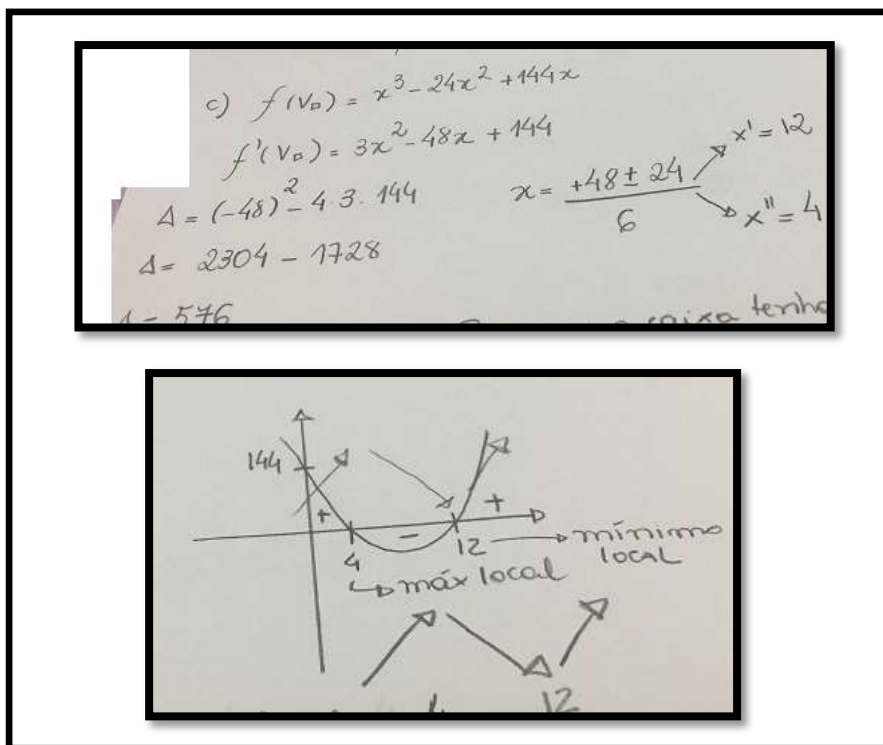 c) f(V□) = x³ - 24x² + 144x
f'(V□) = 3x² - 48x + 144
Δ = (-48)² - 4·3·144
Δ = 2304 - 1728
Δ = 576
x = +48 ± 24 / 6
x' = 12
x'' = 4
caixa tenha
144
+ - +
4 12 → mínimo local
↳ máx local
4 12